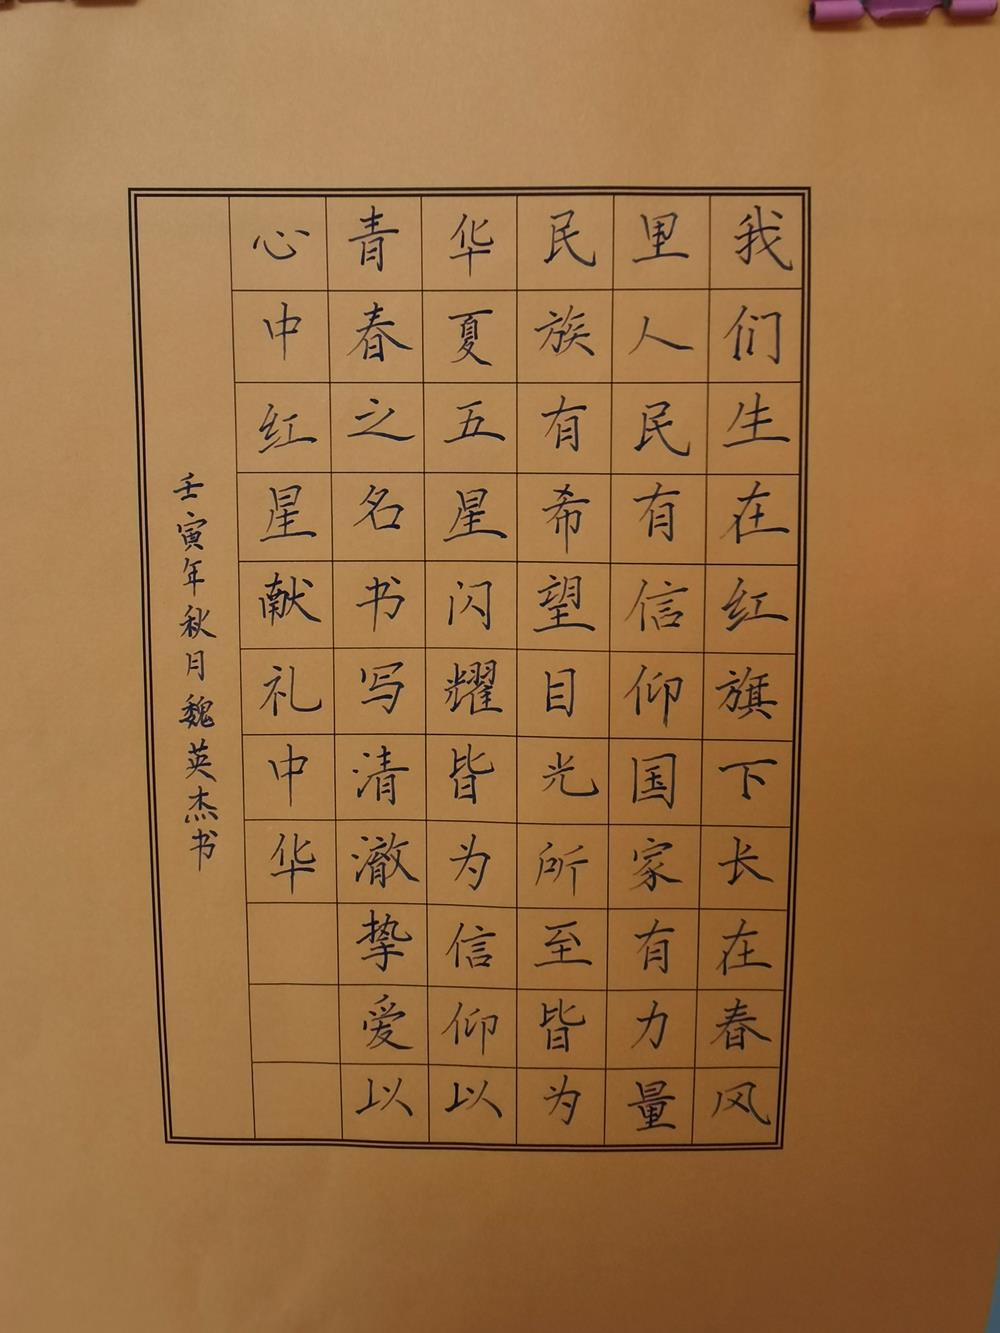 我们生在红旗下长在春风
里人民有信仰国家有力量
民族有希望目光所至皆为
华夏五星闪耀皆为信仰以
青春之名书写清澈挚爱以
心中红星献礼中华
壬寅年秋月魏英杰书